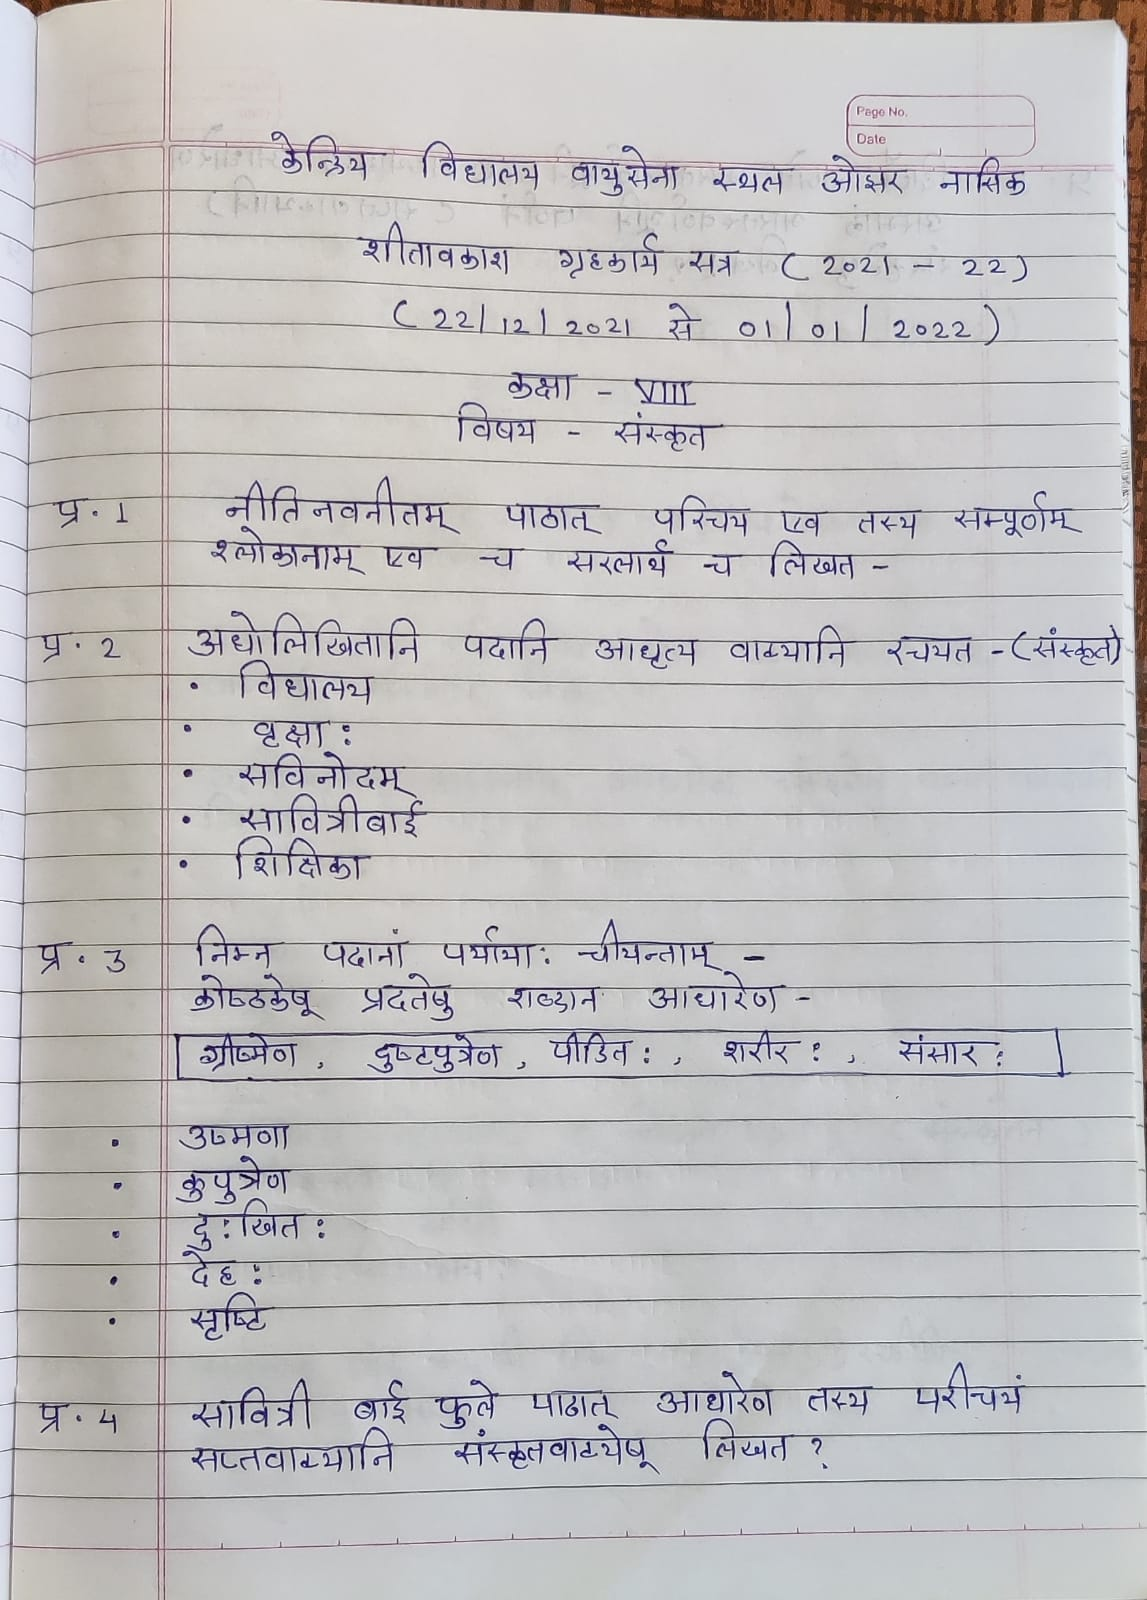 Page No.
Date
केन्द्रिय विद्यालय वायुसेना स्थल ओझर नासिक
शीतावकाश गृहकार्य सत्र ( 2021 - 22 )
( 22/12/2021 से 01/01/2022 )
कक्षा - VIII
विषय - संस्कृत
प्र. 1 नीतिनवनीतम् पाठात् परिचय एव तस्य सम्पूर्णम्
श्लोकानाम् एव च सरलार्थ च लिखत -
प्र. 2 अधोलिखितानि पदानि आधृत्य वाक्यानि रचयत - (संस्कृते)
• विद्यालय
• वृक्षा:
• सविनोदम्
• सावित्रीबाई
• शिक्षिका
प्र. 3 निम्न पदानां पर्याया: चीयन्ताम् -
कोष्ठकेषू प्रदतेषु शब्दान आधारेण -
ग्रीष्मेण , दुष्टपुत्रेण , पीडित: , शरीर: , संसार:
• उष्मणा
• कुपुत्रेण
• दु:खित:
• देह:
• सृष्टि
प्र. 4 सावित्री बाई फुले पाठात् आधारेण तस्य परीचयं
सप्तवाक्यानि संस्कृतवाक्येषू लिखत ?